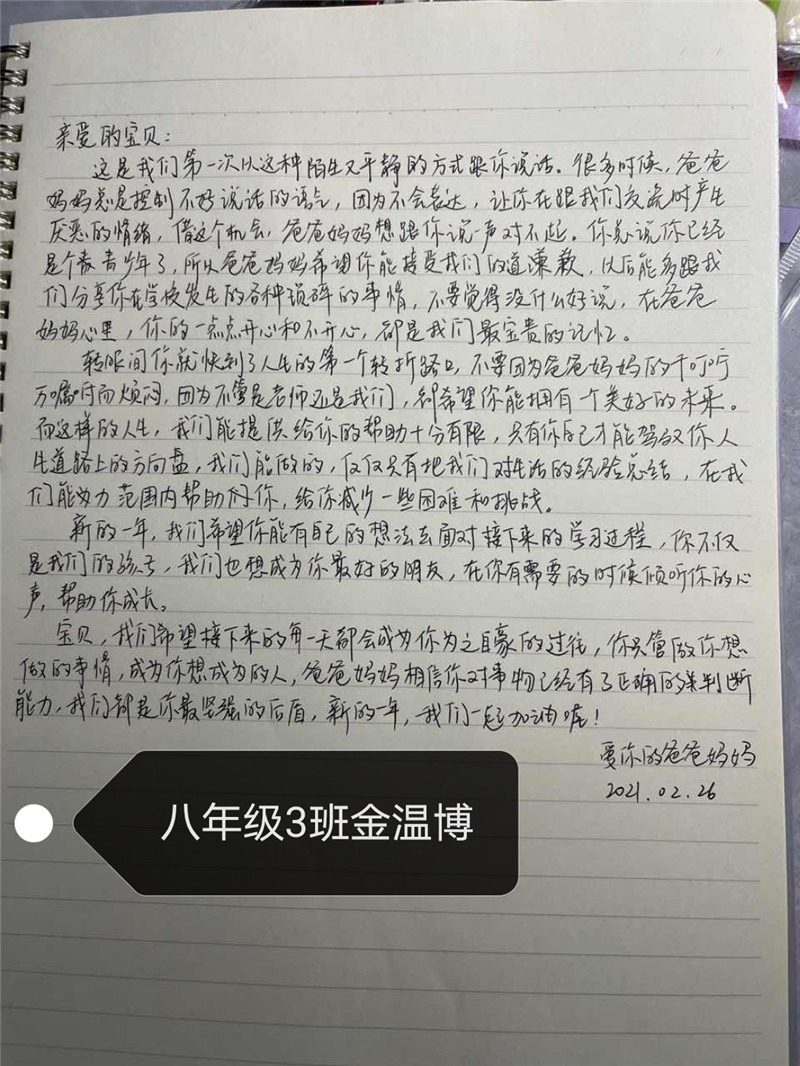 亲爱的宝贝：
这是我们第一次以这种陌生又平静的方式跟你说话。很多时候，爸爸
妈妈总是控制不好说话的语气，因为不会表达，让你在跟我们交流时产生
厌恶的情绪，借这个机会，爸爸妈妈想跟你说一声对不起。你总说你已经
是个青少年了，所以爸爸妈妈希望你能接受我们的道歉，以后能多跟我
们分享你在学校发生的各种琐碎的事情，不要觉得没什么好说，在爸爸
妈妈心里，你的一点点开心和不开心，都是我们最宝贵的记忆。
转眼间你就快到了人生的第一个转折路口，不要因为爸爸妈妈的千叮咛
万嘱咐而烦闷，因为不管是老师还是我们，都希望你能拥有一个美好的未来。
而这样的人生，我们能提供给你的帮助十分有限，只有你自己才能驾驭你人
生道路上的方向盘，我们能做的，仅仅只有把我们对生活的经验总结，在我
们能力范围内帮助你，给你减少一些困难和挑战。
新的一年，我们希望你能有自己的想法去面对接下来的学习过程，你不仅
是我们的孩子，我们也想成为你最好的朋友，在你有需要的时候倾听你的心
声，帮助你成长。
宝贝，我们希望接下来的每一天都会成为你为之自豪的过往，你只管做你想
做的事情，成为你想成为的人，爸爸妈妈相信你对事物已经有了正确的判断
能力，我们都是你最坚强的后盾，新的一年，我们一起加油喔！
爱你的爸爸妈妈
2021.02.26
八年级3班金温博